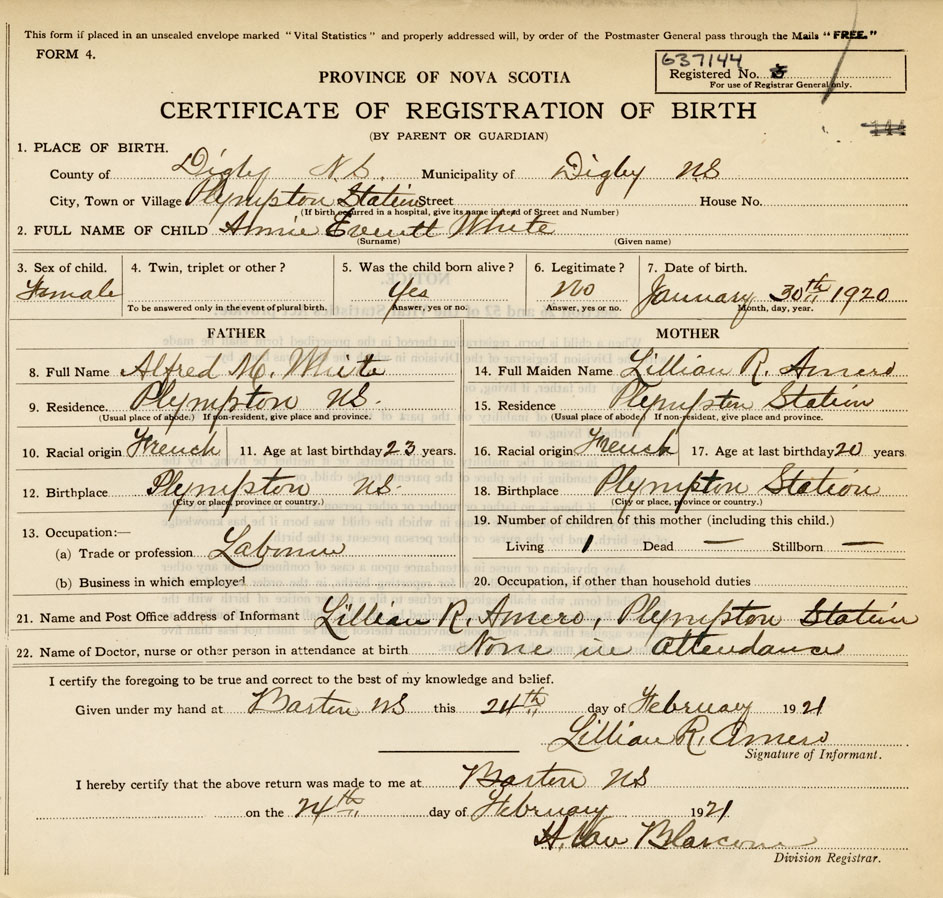 This form if placed in an unsealed envelope marked "Vital Statistics" and properly addressed will, by order of the Postmaster General pass through the Mails "FREE."
FORM 4.
637144
Registered No.
For use of Registrar General only.
PROVINCE OF NOVA SCOTIA
CERTIFICATE OF REGISTRATION OF BIRTH
(BY PARENT OR GUARDIAN)
144
1. PLACE OF BIRTH.
County of Digby N.S. Municipality of Digby NS
City, Town or Village Plympton Station Street House No.
(If birth occurred in a hospital, give its name instead of Street and Number)
2. FULL NAME OF CHILD Annie Everitt White
(Surname) (Given name)
3. Sex of child. 4. Twin, triplet or other? 5. Was the child born alive? 6. Legitimate? 7. Date of birth.
Female Yes No January 30th 1920
To be answered only in the event of plural birth. Answer, yes or no. Answer, yes or no. Month, day, year.
FATHER MOTHER
8. Full Name Alfred M. White 14. Full Maiden Name Lillian R. Amero
9. Residence. Plympton NS. 15. Residence Plympton Station
(Usual place of abode.) If non-resident, give place and province. (Usual place of abode.) If non-resident, give place and province.
10. Racial origin French 11. Age at last birthday 23 years. 16. Racial origin French 17. Age at last birthday 20 years
12. Birthplace Plympton NS. 18. Birthplace Plympton Station
(City or place, province or country.) (City or place, province or country.)
13. Occupation:— 19. Number of children of this mother (including this child.)
(a) Trade or profession Labourer Living 1 Dead — Stillborn —
(b) Business in which employed 20. Occupation, if other than household duties
21. Name and Post Office address of Informant Lillian R. Amero, Plympton Station
22. Name of Doctor, nurse or other person in attendance at birth None in Attendance
I certify the foregoing to be true and correct to the best of my knowledge and belief.
Given under my hand at Barton NS this 24th day of February 1921
Lillian R. Amero
Signature of Informant.
I hereby certify that the above return was made to me at Barton NS
on the 24th day of February 1921
H. Van Blarcome
Division Registrar.